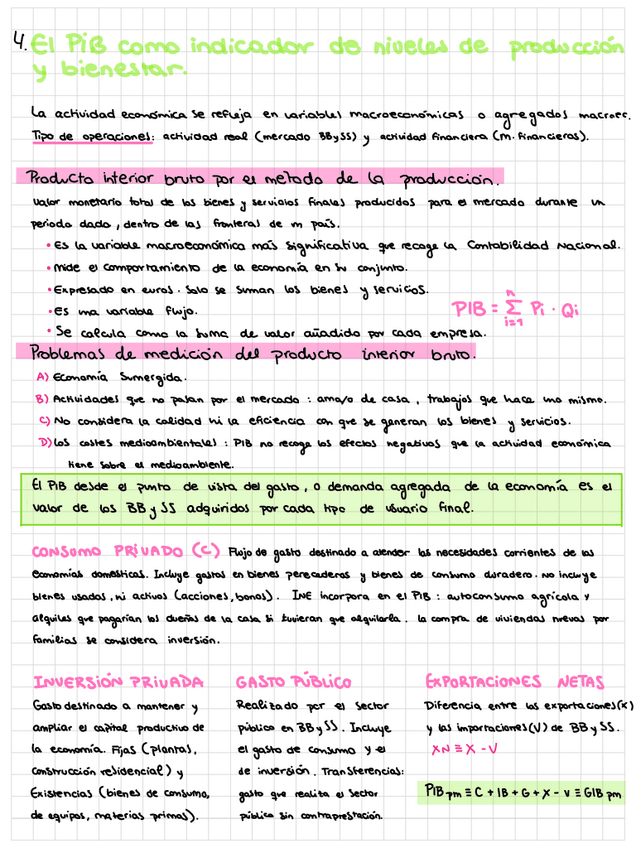 4. El PiB como indicador de niveles de producción
y bienestar.
La actividad económica se refleja en variables macroeconómicas o agregados macroec.
Tipo de operaciones: actividad real (mercado BBySS) y actividad financiera (m. financieros).
Producto interior bruto por el metodo de la producción.
Valor monetario total de los bienes y servicios finales producidos para el mercado durante un
periodo dado, dentro de las fronteras de un país.
• Es la variable macroeconómica más significativa que recoge la Contabilidad Nacional.
• Mide el comportamiento de la economía en su conjunto.
• Expresado en euros. Solo se suman los bienes y servicios.
• Es una variable flujo.
• Se calcula como la suma de valor añadido por cada empresa.
PIB = n Σ i=1 Pi · Qi
Problemas de medición del producto interior bruto.
A) Economía Sumergida.
B) Actividades que no pasan por el mercado: ama/o de casa, trabajos que hace uno mismo.
C) No considera la calidad ni la eficiencia con que se generan los bienes y servicios.
D) Los costes medioambientales: PIB no recoge los efectos negativos que la actividad económica
tiene sobre el medioambiente.
El PIB desde el punto de vista del gasto, o demanda agregada de la economía es el
valor de los BBySS adquiridos por cada tipo de usuario final.
CONSUMO PRIVADO (C) Flujo de gasto destinado a atender las necesidades corrientes de las
economías domésticas. Incluye gastos en bienes perecederos y bienes de consumo duradero. No incluye
bienes usados, ni activos (acciones, bonos). INE incorpora en el PIB: autoconsumo agrícola y
alquiles que pagarían los dueños de la casa si tuvieran que alquilarla. La compra de viviendas nuevas por
familias se considera inversión.
INVERSIÓN PRIVADA
Gasto destinado a mantener y
ampliar el capital productivo de
la economía. Fijas (plantas,
construcción residencial) y
Existencias (bienes de consumo,
de equipos, materias primas).
GASTO PÚBLICO
Realizado por el sector
público en BBySS. Incluye
el gasto de consumo y el
de inversión. Transferencias:
gasto que realiza el Sector
público sin contraprestación.
EXPORTACIONES NETAS
Diferencia entre las exportaciones (X)
y las importaciones (V) de BBySS.
XN ≡ X - V
PIB pm ≡ C + IB + G + X - V ≡ GIB pm